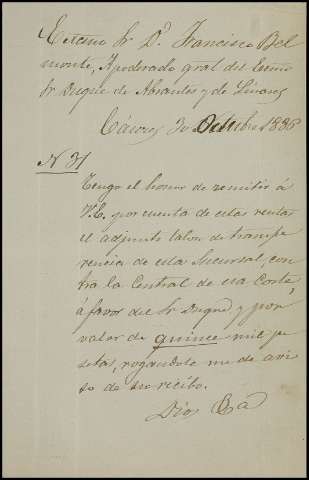 Excmo Sr Dn Francisco Bel
monte, Apoderado gral del Excmo
Sr Duque de Abrantes y de Linares
Cáceres 30 Octubre 1886
N 31
Tengo el honor de remitir á
V.E. por cuenta de estas rentas
el adjunto talon de transfe
rencia de esta Sucursal, con
tra la Central de esa Corte,
á favor del Sr Duque, y por
valor de quince mil pe
setas, rogandole me de avi
so de su recibo.
Dios